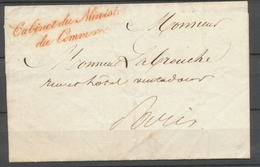 Cabinet du Minist.
du Commerce
Monsieur
Monsieur Labrouche
rue et hôtel ventadour
Paris